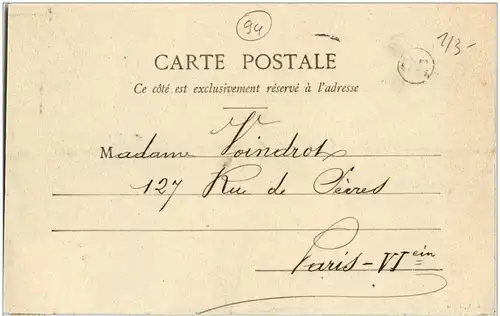 94
1/3-
CARTE POSTALE
Ce côté est exclusivement réservé à l'adresse
Madame Voindrot
127 Rue de Sèvres
Paris-VIein